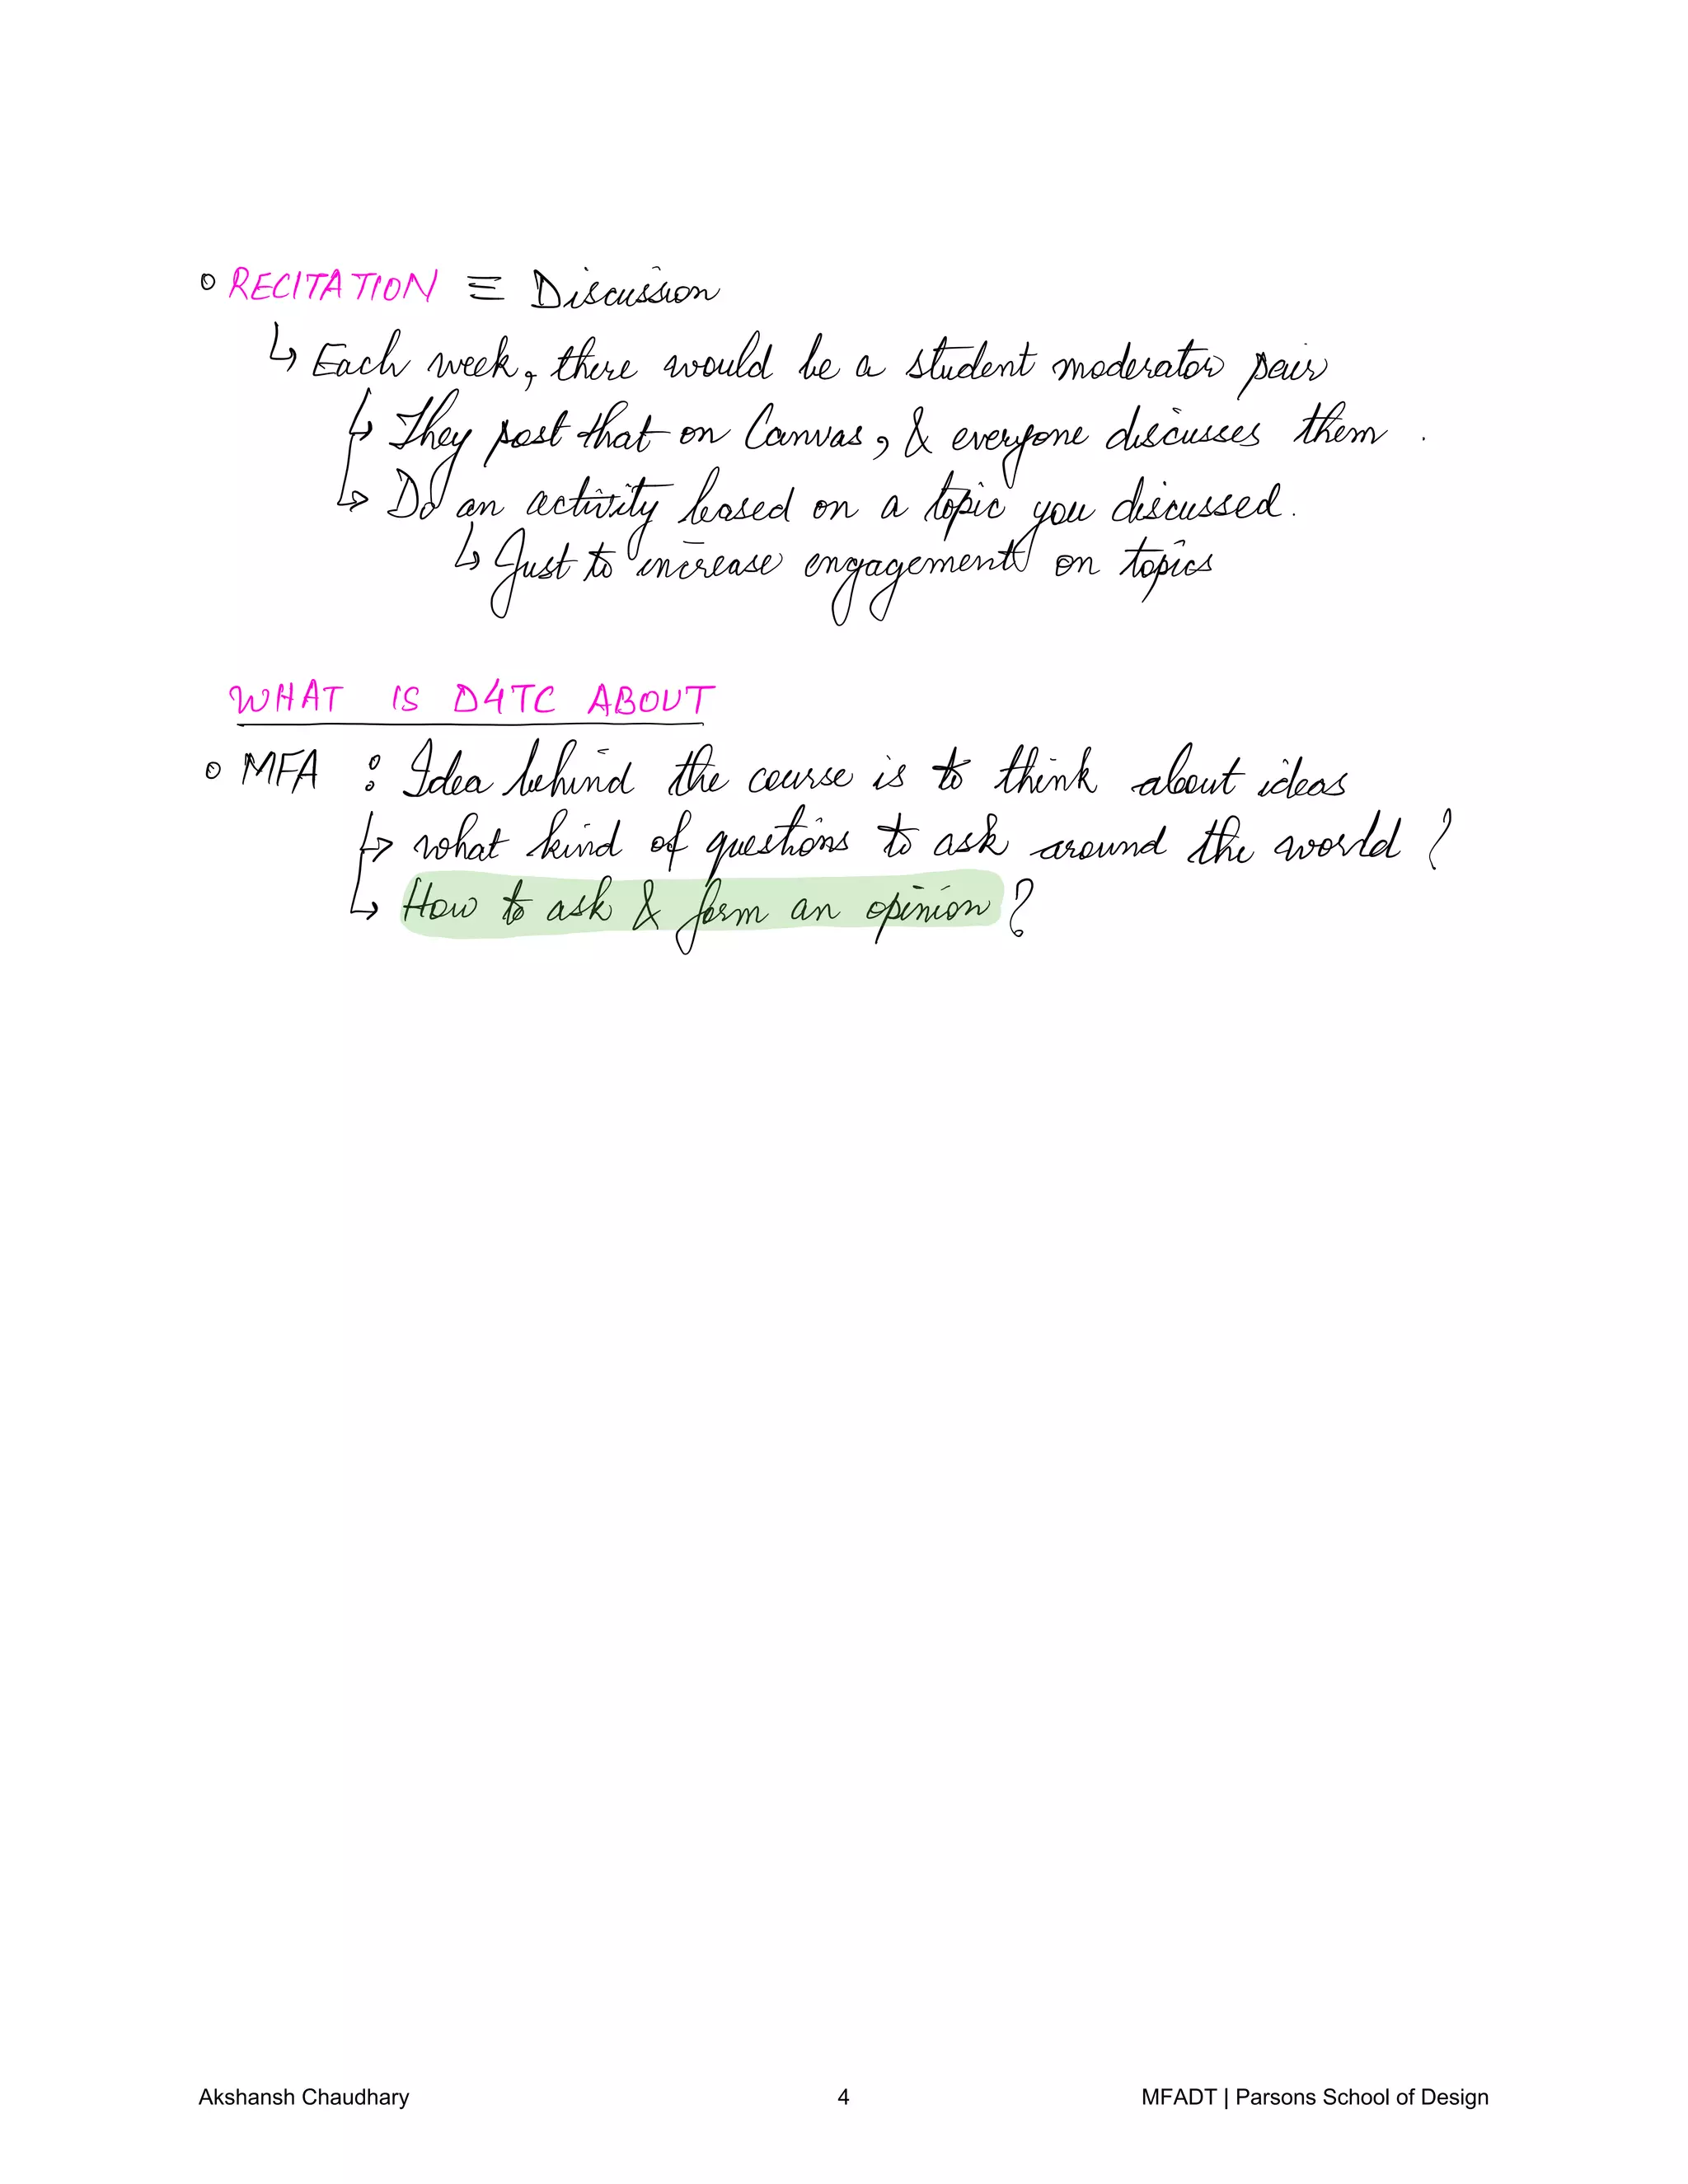 ◦ RECITATION ≡ Discussion
↳ Each week, there would be a student moderator pair
↳ They post that on Canvas, & everyone discusses them.
↳ Do an activity based on a topic you discussed.
↳ Just to increase engagement on topics
WHAT IS D4TC ABOUT
◦ MFA : Idea behind the course is to think about ideas
↳ what kind of questions to ask around the world ?
↳ How to ask & form an opinion ?
Akshansh Chaudhary 4 MFADT | Parsons School of Design